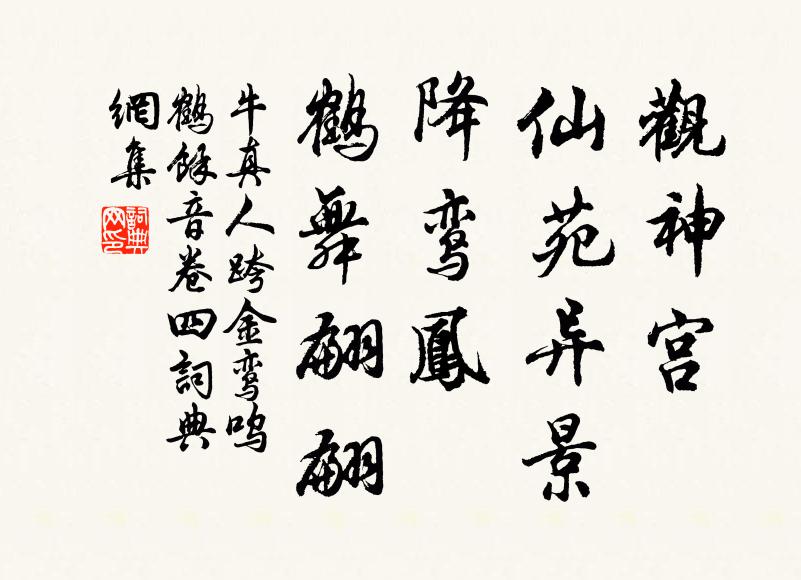 觀神宫
仙苑异景
降鸾鳳
鶴舞翩翩
牛真人跨金鸾鸣
鶴餘音卷四詞典
網集
詞典
网印